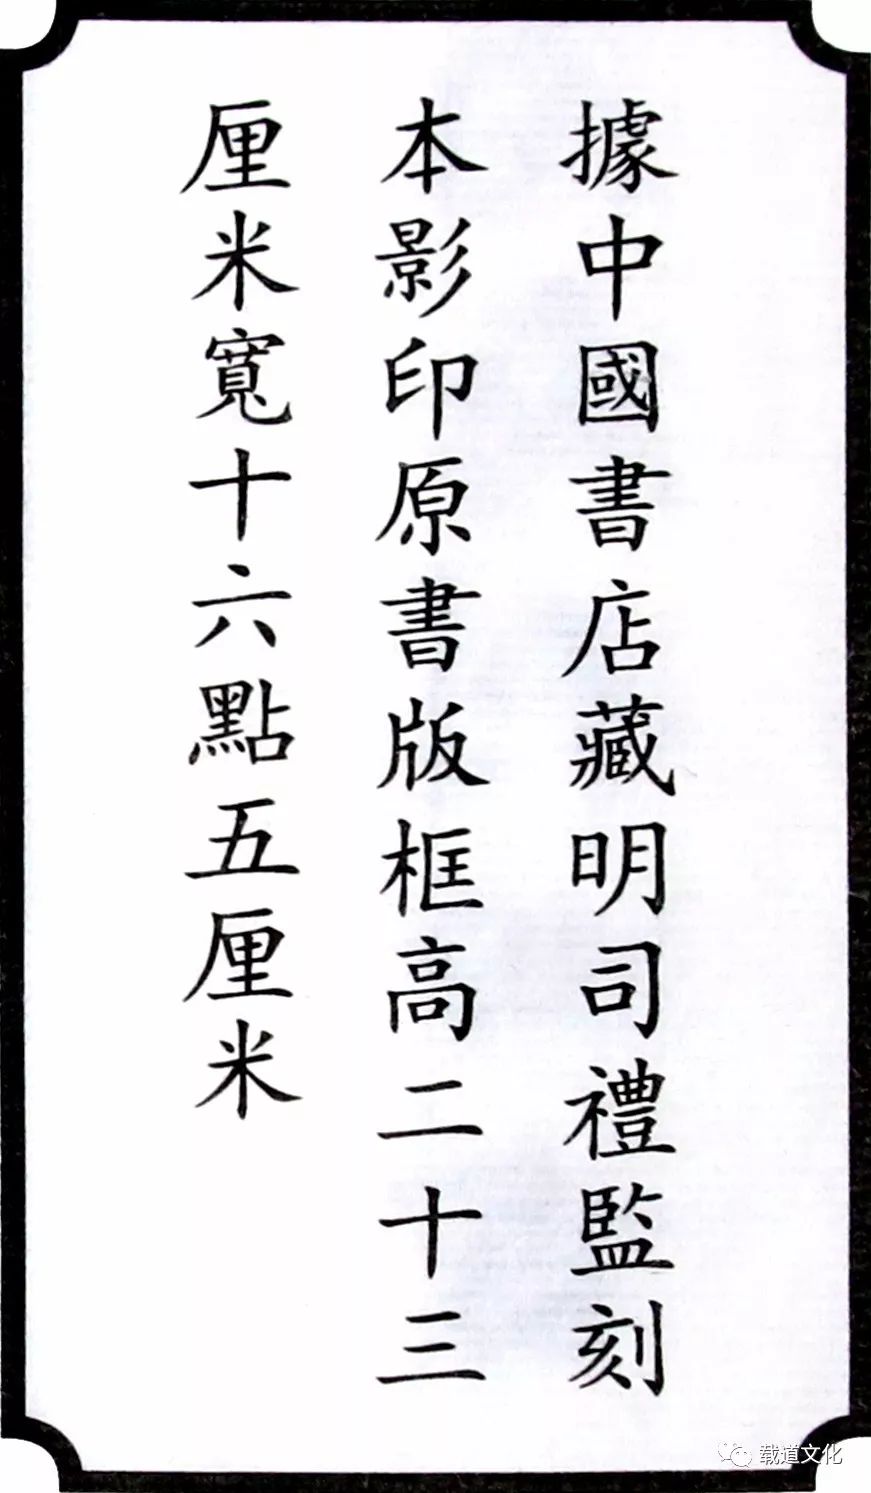 據中國書店藏明司禮監刻
本影印原書版框高二十三
厘米寬十六點五厘米
载道文化